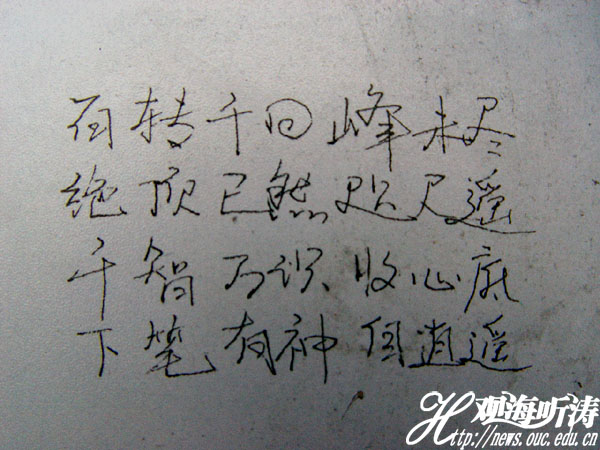 百转千回峰未尽
绝顶已然咫尺遥
千智万识收心底
下笔有神任逍遥
观海听涛
Http://news.ouc.edu.cn